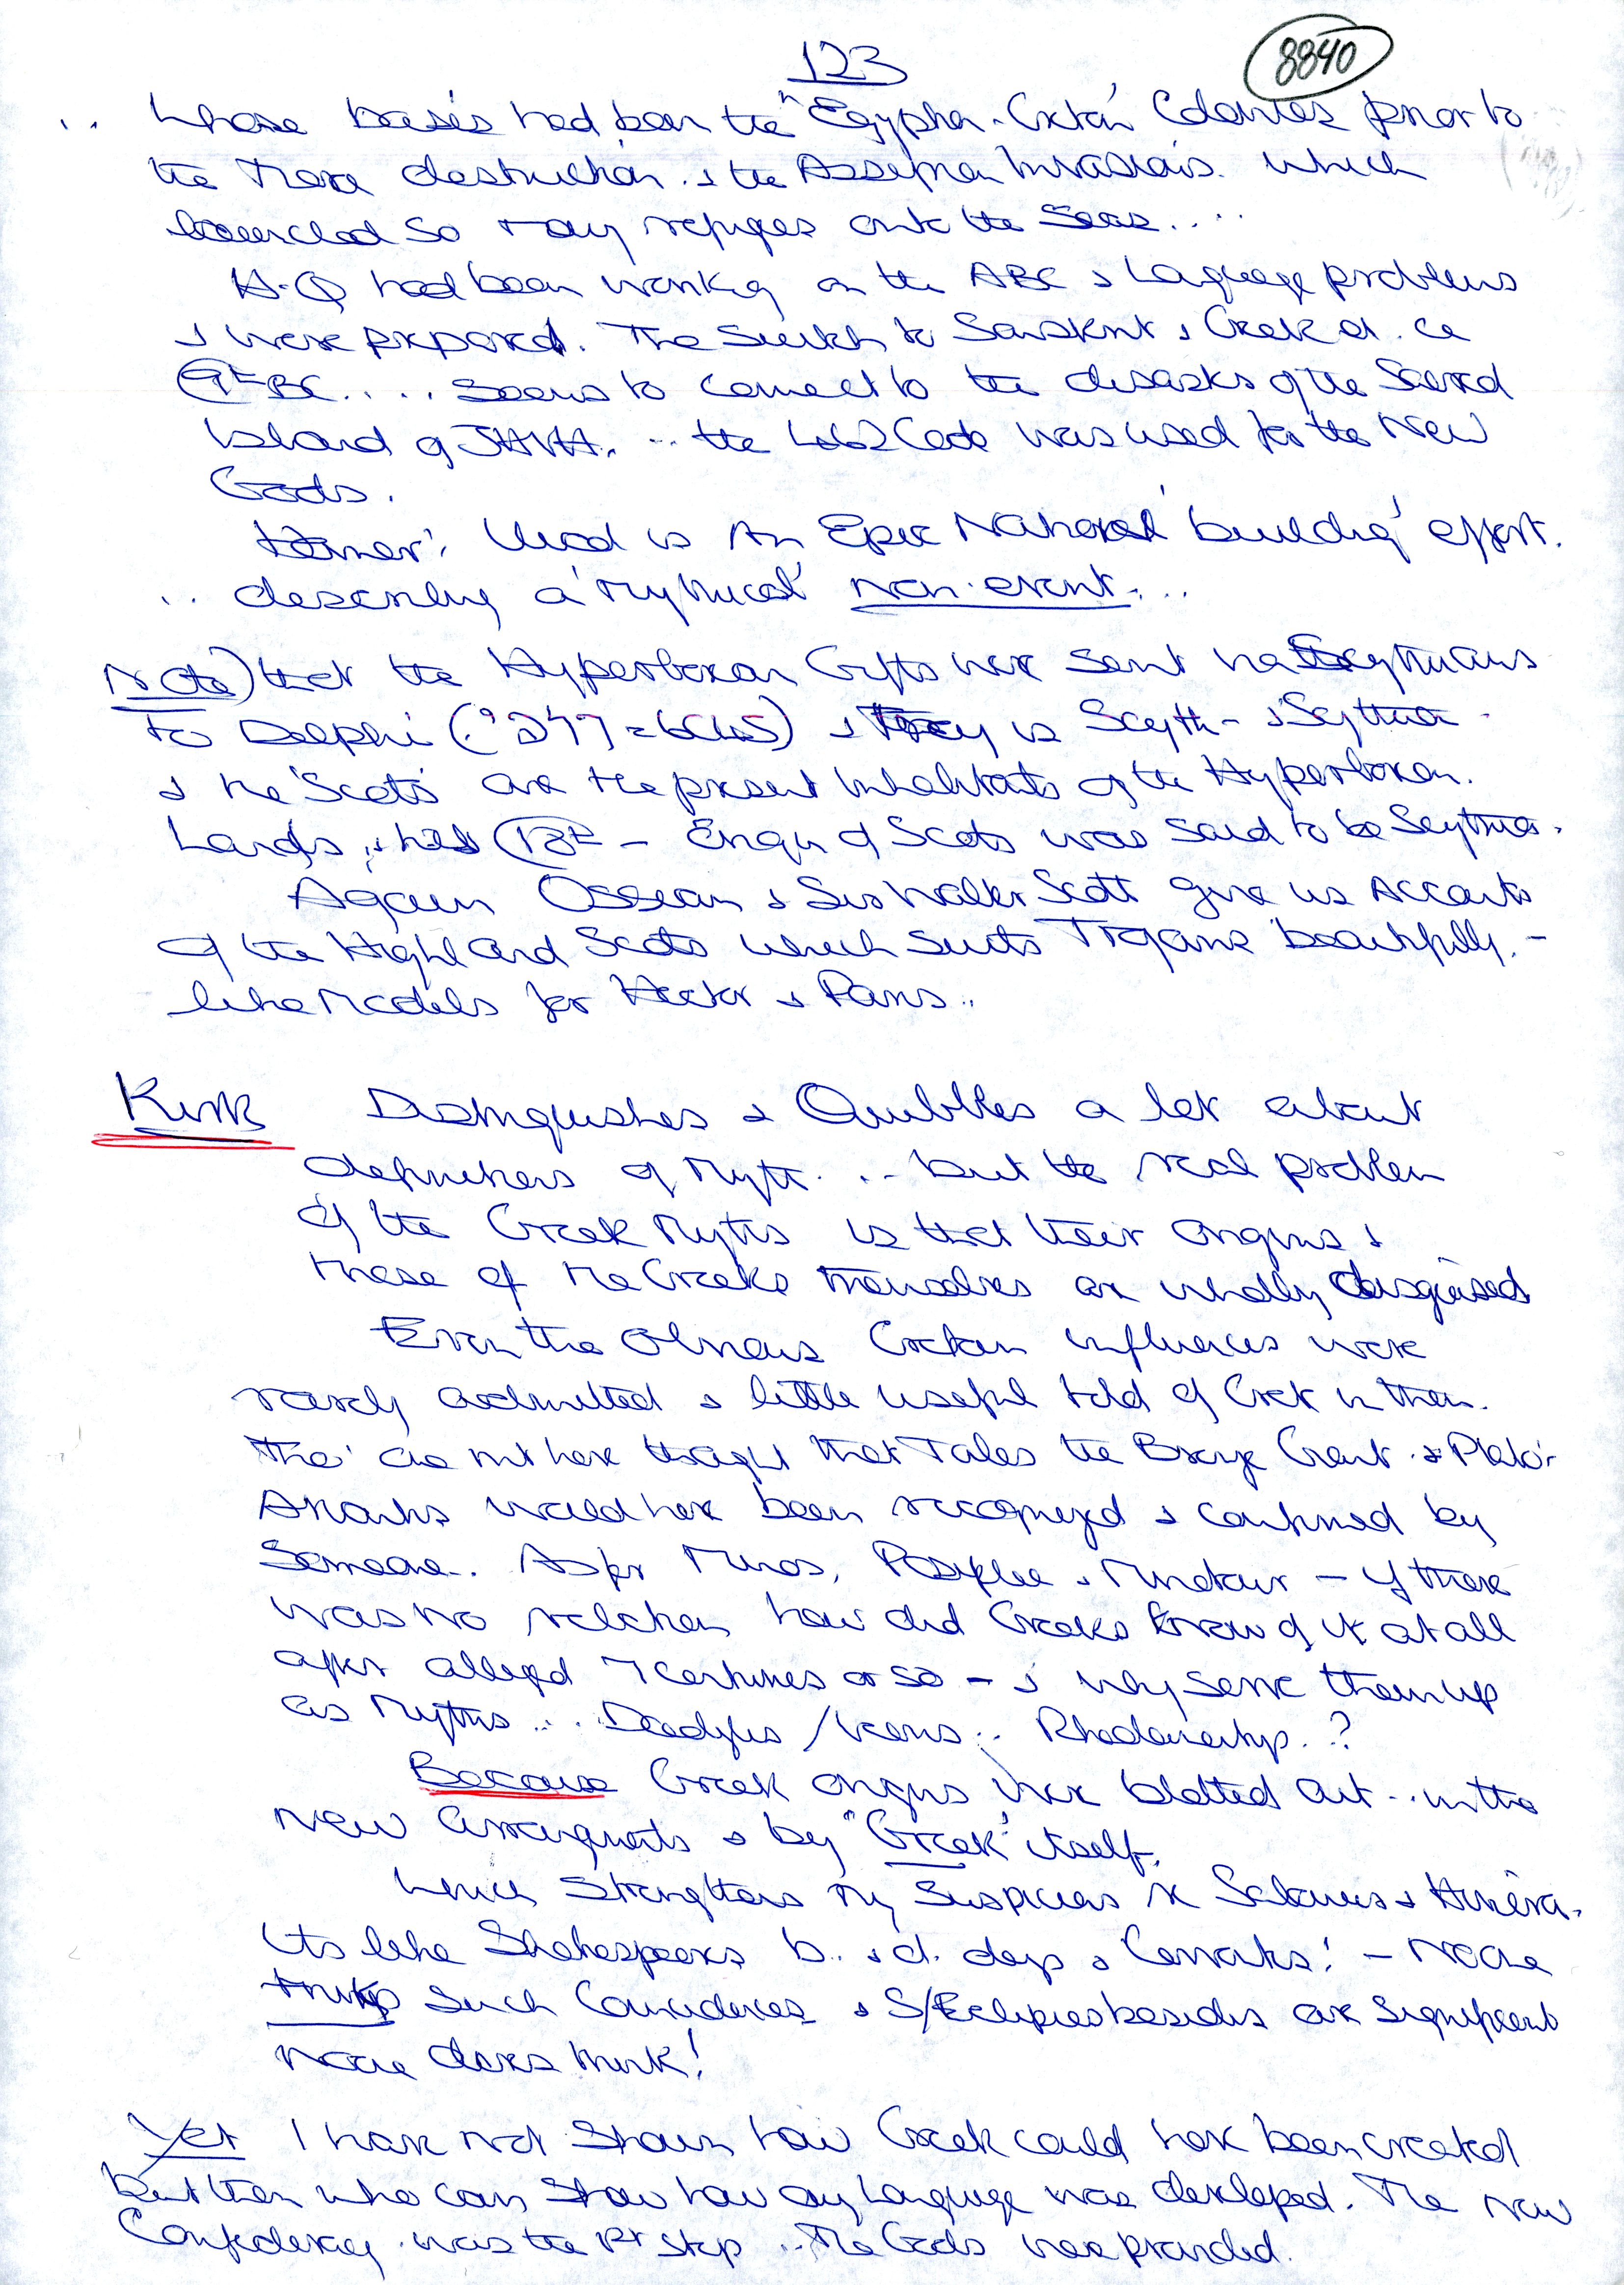 123
8840
.. whose basis had been the "Egyptian-Cretan' Colonies prior to
the Thera destruction. & the Assyrian Invasions. which
launched so many refugees onto the Seas....
H-Q had been working on the ABC & Language problems
& were prepared. The Switch to Sanskrit & Greek at. ce
BC.... seems to connect to the disasters of the Sacred
Island of JAVA. ... the Code was used for the New
Gods.
Homer's Iliad is An Epic National 'building' effort.
.. describing a 'mythical' non-event...
Note) that the Hyperborean Gifts were sent via Scythians
to Delphi ( ) & is Scyth- & Scythia -
& the 'Scots' are the present Inhabitants of the Hyperborean.
Lands, - Origin of Scots was said to be Scythia.
Again Ossian & Sir Walter Scott give us Accounts
of the Highland Scots which suits Trojans beautifully. -
like Models for Hector & Paris..
Kirk Distinguishes & Quibbles a lot about
definitions of Myth. ... but the real problem
of the Greek Myths is that their origins &
those of the Greeks themselves are wholly disguised
Even the obvious Cretan influences were
rarely admitted & little useful told of Crete in them.
Tho' one might have thought that Talos the Bronze Giant. & Plato's
Atlantis would have been recognized & confirmed by
Someone. As for Minos, Pasiphae & Minotaur - if there
was no relation how did Greeks know of it at all
after alleged 7 centuries or so - & why serve them up
as Myths ... Daedalus / Icarus.. ?
Because Greek origins were blotted out ... in the
new arrangements & by "Greek" itself.
which Strengthens my Suspicions re Salamis & Himera.
Its like Shakespeare's b. & d. days & Cervantes! - No one
thinks such Coincidences & S/Eclipses besides are Significant
no one does think!
Yet I have not shown how Greek could have been created
but then who can show how any language was developed. The new
Confederacy was the 1st step ... The Gods were provided.